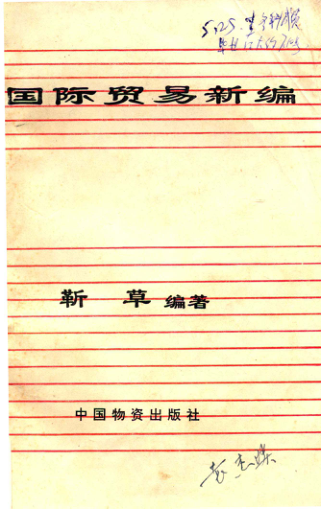 5.25.
国际贸易新编
靳 草 编著
中国物资出版社